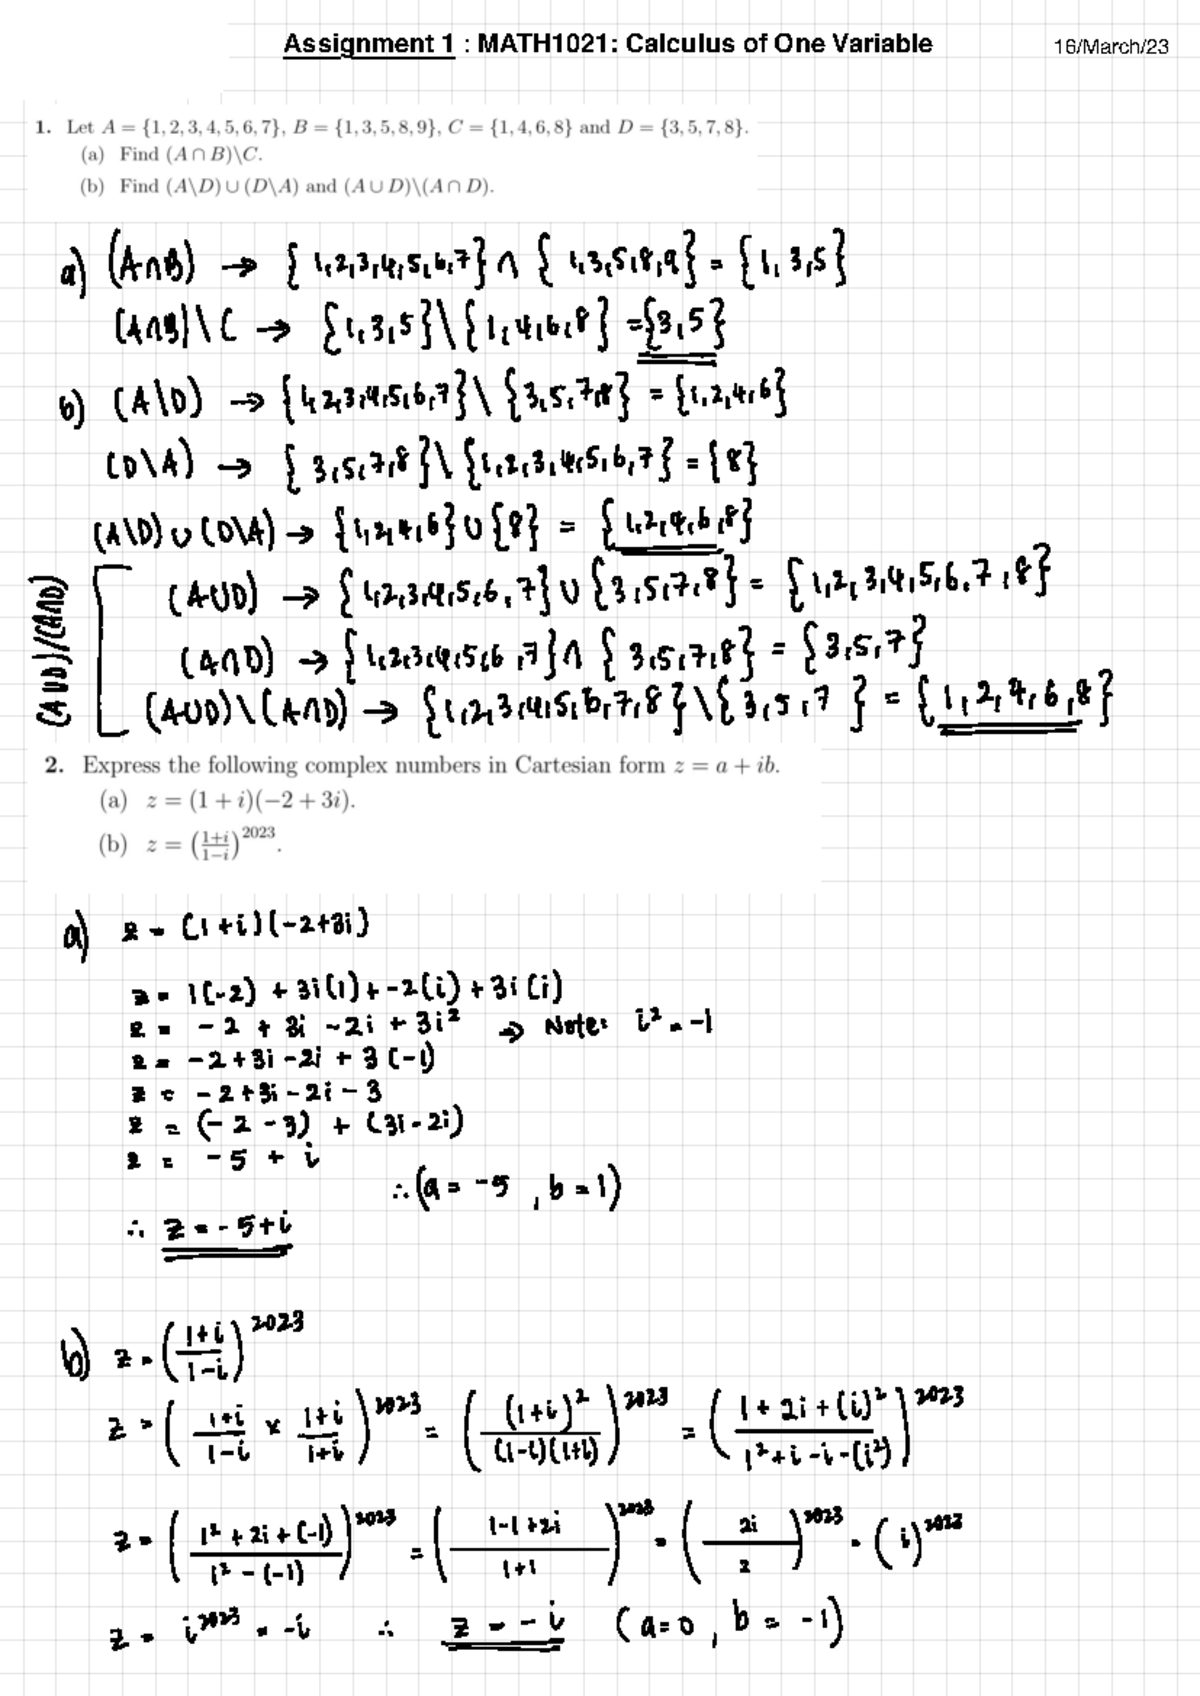 Assignment 1 : MATH1021: Calculus of One Variable 16/March/23
1. Let A = {1, 2, 3, 4, 5, 6, 7}, B = {1, 3, 5, 8, 9}, C = {1, 4, 6, 8} and D = {3, 5, 7, 8}.
(a) Find (A ∩ B)\C.
(b) Find (A\D) ∪ (D\A) and (A ∪ D)\(A ∩ D).
a) (A∩B) → {1,2,3,4,5,6,7} ∩ {1,3,5,8,9} = {1,3,5}
(A∩B)\C → {1,3,5}\{1,4,6,8} = {3,5}
b) (A\D) → {1,2,3,4,5,6,7}\{3,5,7,8} = {1,2,4,6}
(D\A) → {3,5,7,8}\{1,2,3,4,5,6,7} = {8}
(A\D) ∪ (D\A) → {1,2,4,6} ∪ {8} = {1,2,4,6,8}
(A∪D)/(A∩D)
(A∪D) → {1,2,3,4,5,6,7} ∪ {3,5,7,8} = {1,2,3,4,5,6,7,8}
(A∩D) → {1,2,3,4,5,6,7} ∩ {3,5,7,8} = {3,5,7}
(A∪D)\(A∩D) → {1,2,3,4,5,6,7,8}\{3,5,7} = {1,2,4,6,8}
2. Express the following complex numbers in Cartesian form z = a + ib.
(a) z = (1 + i)(−2 + 3i).
(b) z = ((1+i)/(1−i))^2023.
a) z = (1+i)(-2+3i)
z = 1(-2) + 3i(1) + -2(i) + 3i(i)
z = -2 + 3i -2i + 3i² → Note: i² = -1
z = -2+3i-2i + 3(-1)
z = -2+3i-2i-3
z = (-2-3) + (3i-2i)
z = -5 + i
∴ (a = -5, b = 1)
∴ z = -5+i
b) z = ((1+i)/(1-i))^2023
z = ((1+i)/(1-i) × (1+i)/(1+i))^2023 = ((1+i)²/((1-i)(1+i)))^2023 = ((1+2i+(i)²)/(1²+i-i-(i²)))^2023
z = ((1²+2i+(-1))/(1²-(-1)))^2023 = ((1-1+2i)/(1+1))^2023 = (2i/2)^2023 = (i)^2023
z = i^2023 = -i ∴ z = -i (a=0, b = -1)